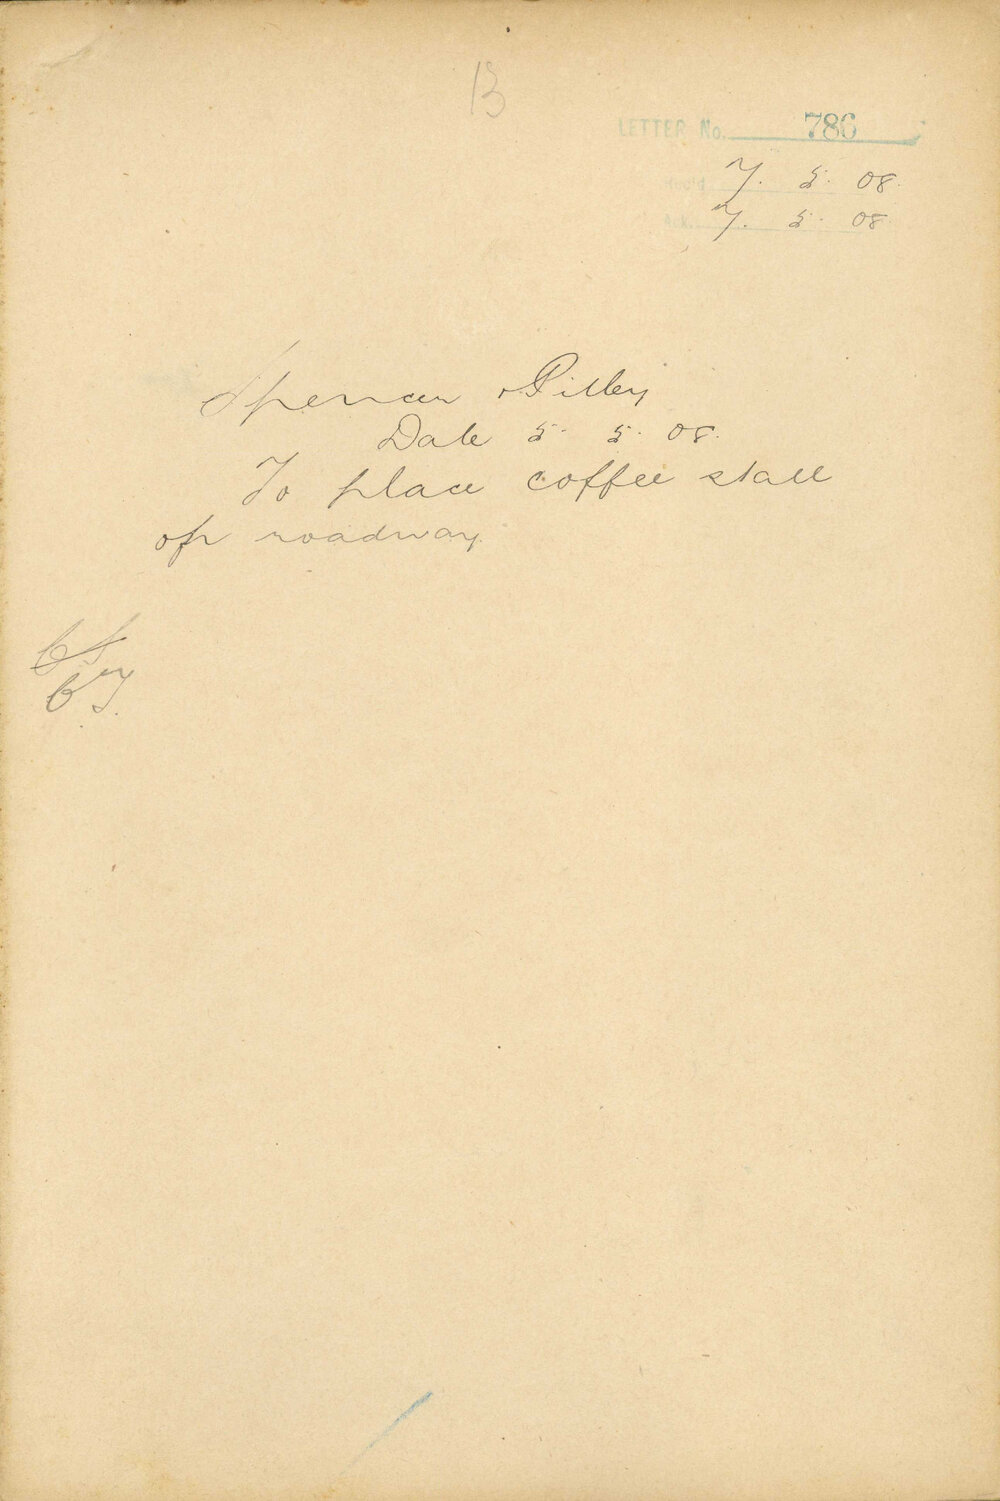 13
LETTER No. 786
Rec'd 7. 5. 08.
Ack. 7. 5. 08
Spencer & Pilley
Date 5. 5. 08.
To place coffee stall
on roadway